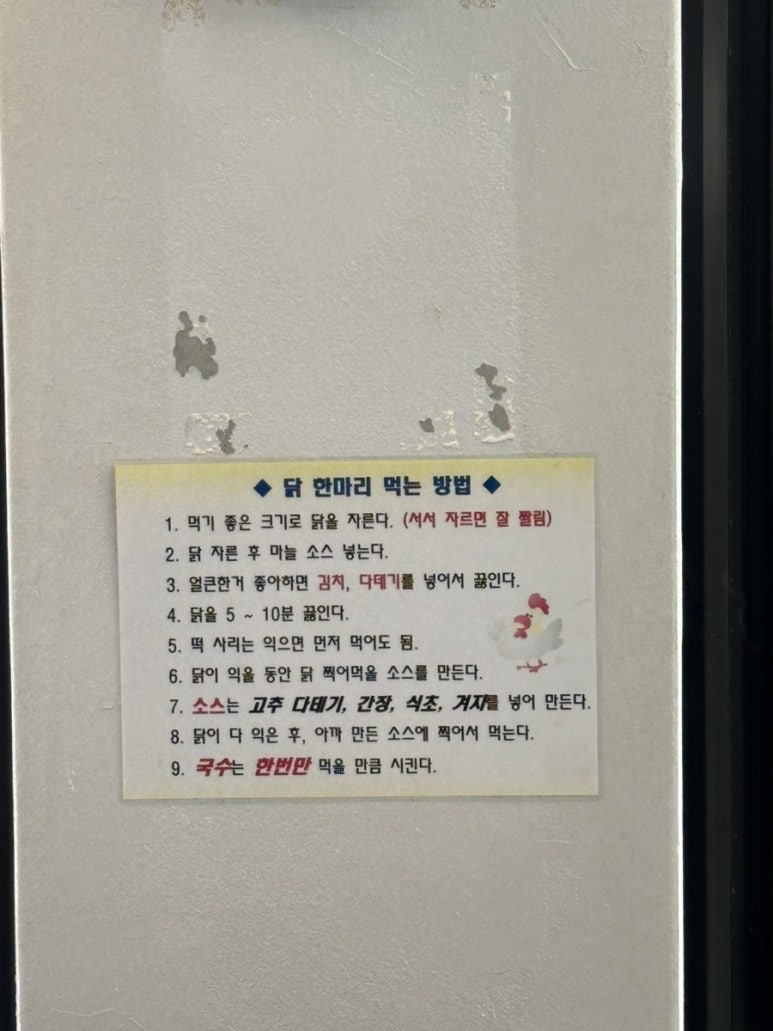 ◆ 닭 한마리 먹는 방법 ◆
1. 먹기 좋은 크기로 닭을 자른다. (서서 자르면 잘 짤림)
2. 닭 자른 후 마늘 소스 넣는다.
3. 얼큰한거 좋아하면 김치, 다데기를 넣어서 끓인다.
4. 닭을 5 ~ 10분 끓인다.
5. 떡 사리는 익으면 먼저 먹어도 됨.
6. 닭이 익을 동안 닭 찍어먹을 소스를 만든다.
7. 소스는 고추 다데기, 간장, 식초, 겨자를 넣어 만든다.
8. 닭이 다 익은 후, 아까 만든 소스에 찍어서 먹는다.
9. 국수는 한번만 먹을 만큼 시킨다.